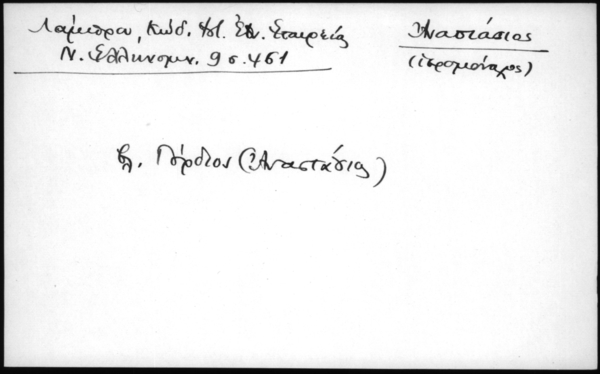 Λάμπρου, Κώδ. Ἱστ. Ἐθν. Ἑταιρείας
Ν. Ἑλληνομν. 9 σ. 451
Ἀναστάσιος
(ἱερομόναχος)
βλ. Γόρδιον (Ἀναστάσιος)